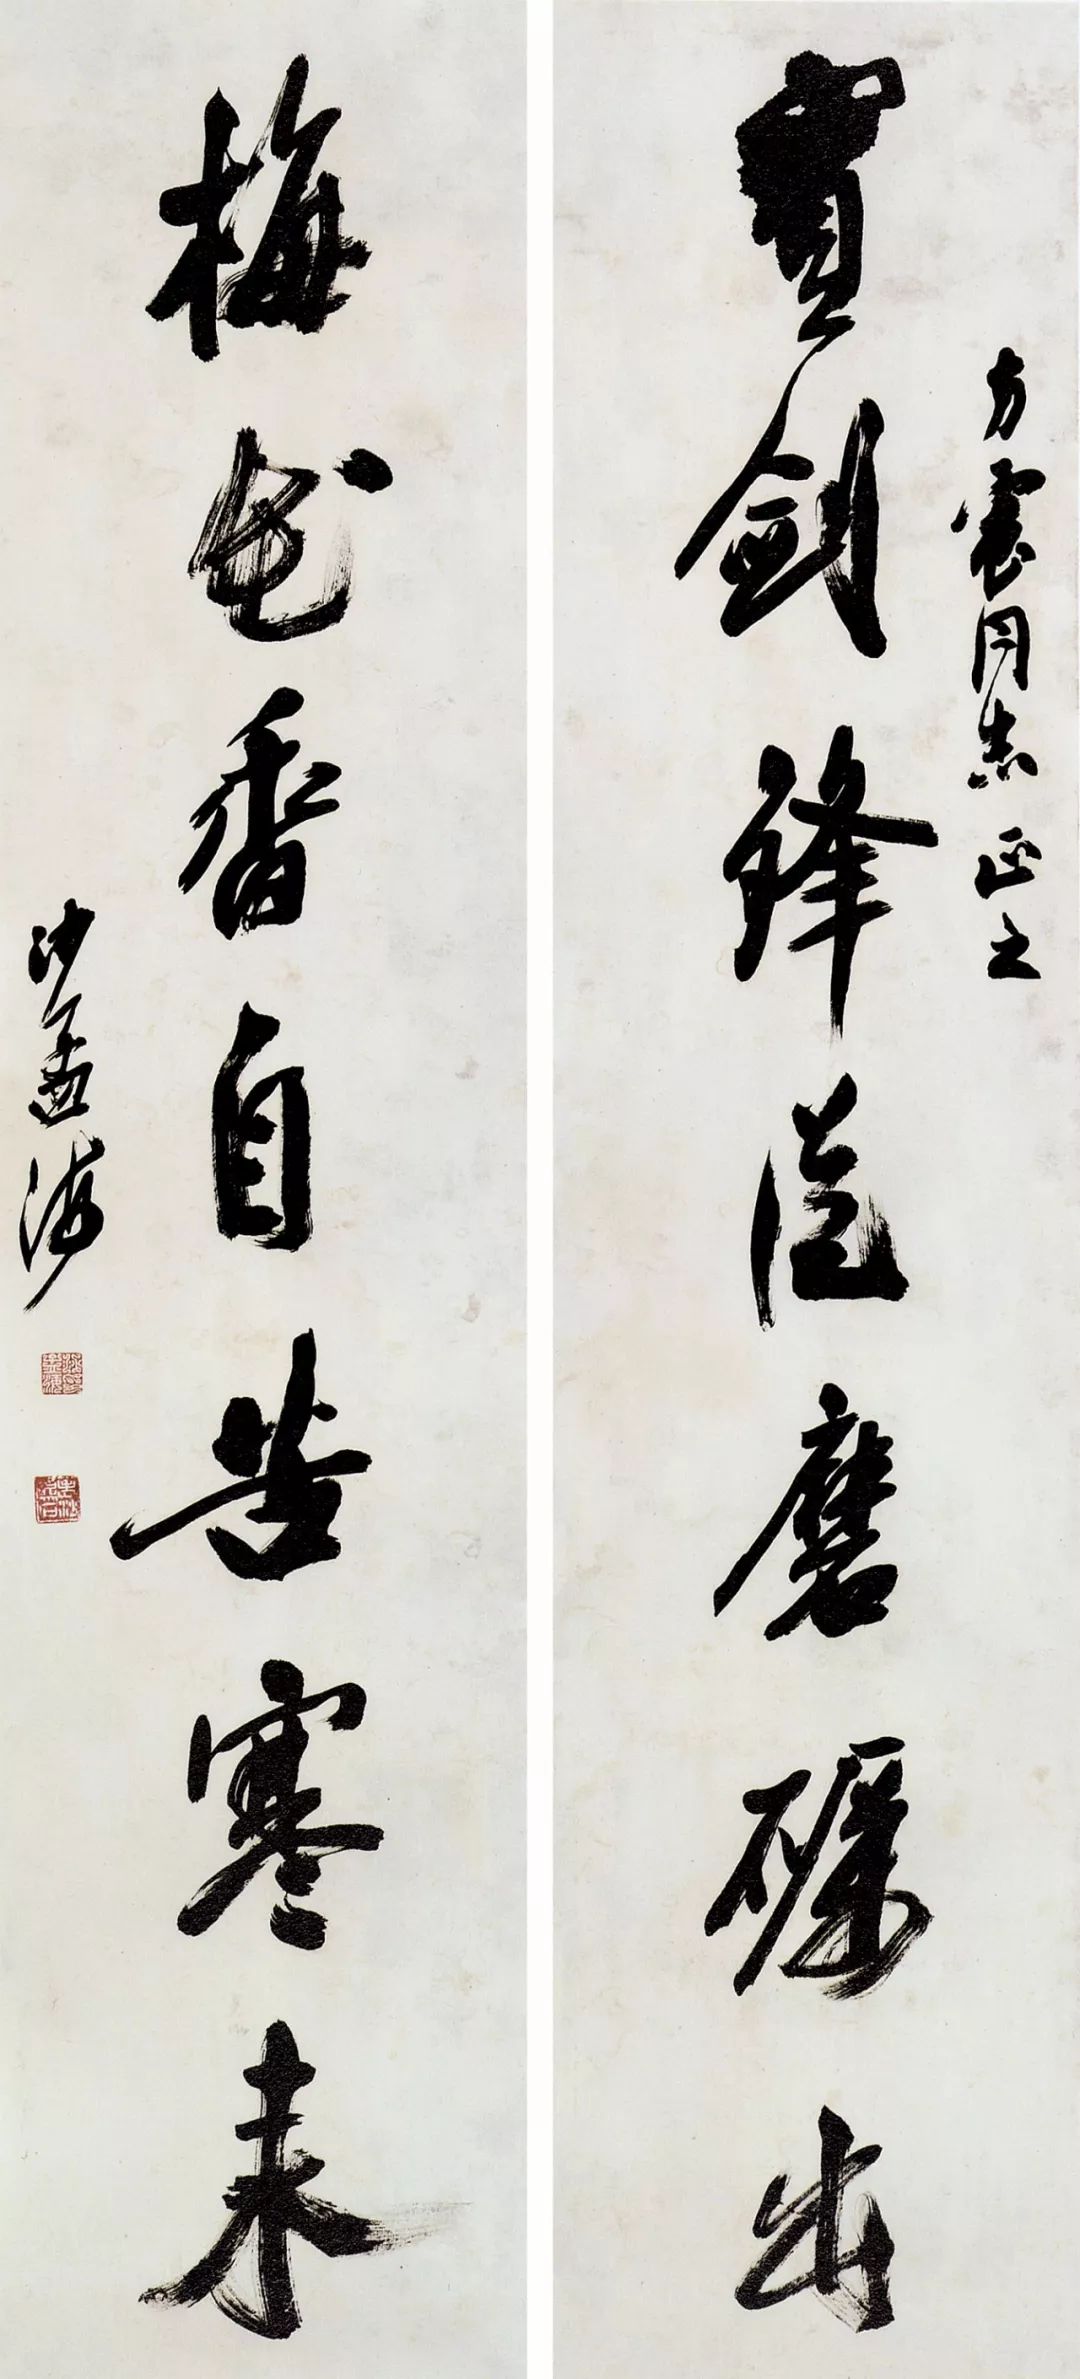 方震同志正之
寶劍鋒從磨礪出
梅花香自苦寒來
沙孟海